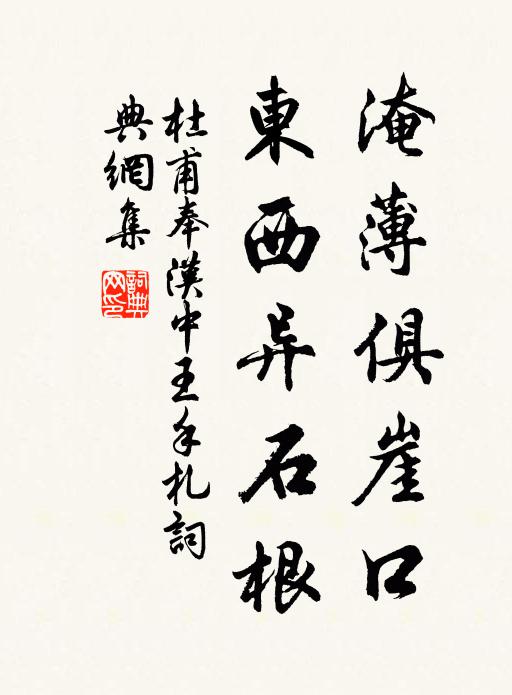 淹薄俱崖口
東西异石根
杜甫奉漢中王手札詞
典網集
詞典
网印